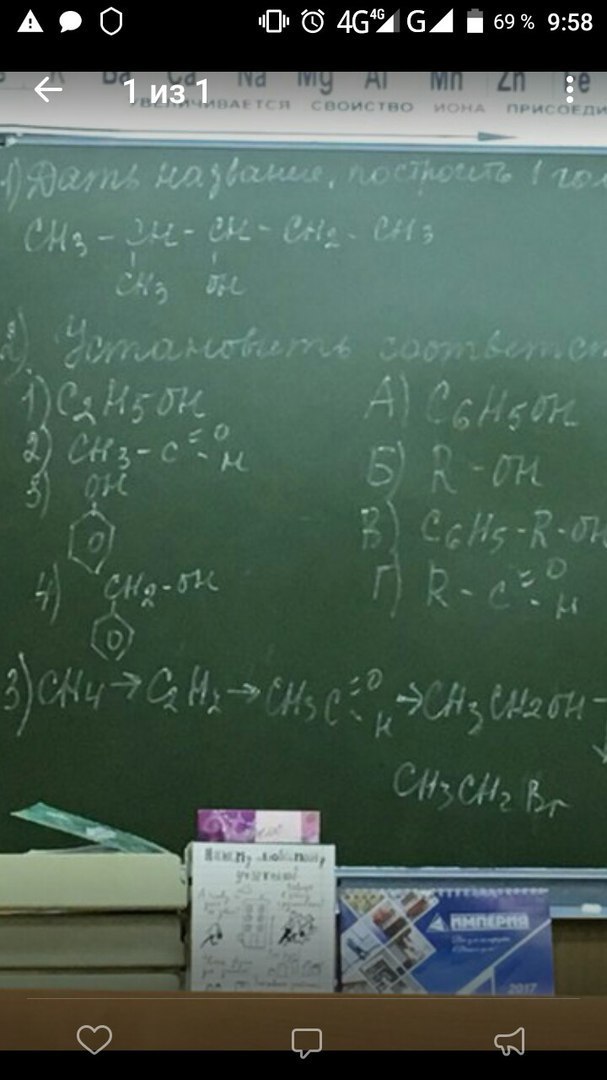 4G 4G G 69 % 9:58
1 из 1
Ba Ca Na Mg Al Mn Zn Fe
УВЕЛИЧИВАЕТСЯ СВОЙСТВО ИОНА ПРИСОЕДИ
1) Дать название, построить 1 гом
CH3 - CH - CH - CH2 - CH3
CH3 OH
2) Установить соответст
1) C2H5OH А) C6H5OH
2) CH3 - C = O - H Б) R - OH
3) OH
В) C6H5 - R - OH
4) CH2 - OH Г) R - C = O - H
3) CH4 → C2H2 → CH3C = O - H → CH3CH2OH -
CH3CH2Br
ИМПЕРИЯ
2017